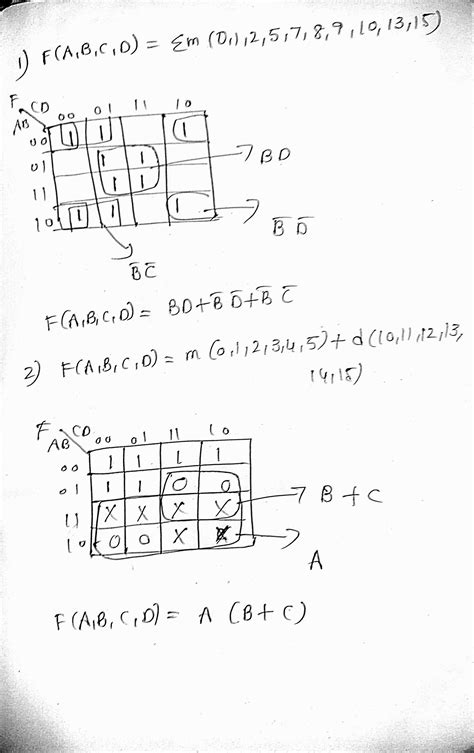 1) F(A,B,C,D) = Σm (0,1,2,5,7,8,9,10,13,15)
F CD 00 01 11 10
AB
00 1 1 1
01 1 1 → BD
11 1 1
10 1 1 1 → B̅ D̅
B̅ C̅
F(A,B,C,D) = BD + B̅ D̅ + B̅ C̅
2) F(A,B,C,D) = m (0,1,2,3,4,5) + d (10,11,12,13,
14,15)
F CD 00 01 11 10
AB
00 1 1 1 1
01 1 1 0 0
11 X X X X → B + C
10 0 0 X X →
A
F(A,B,C,D) = A (B + C)